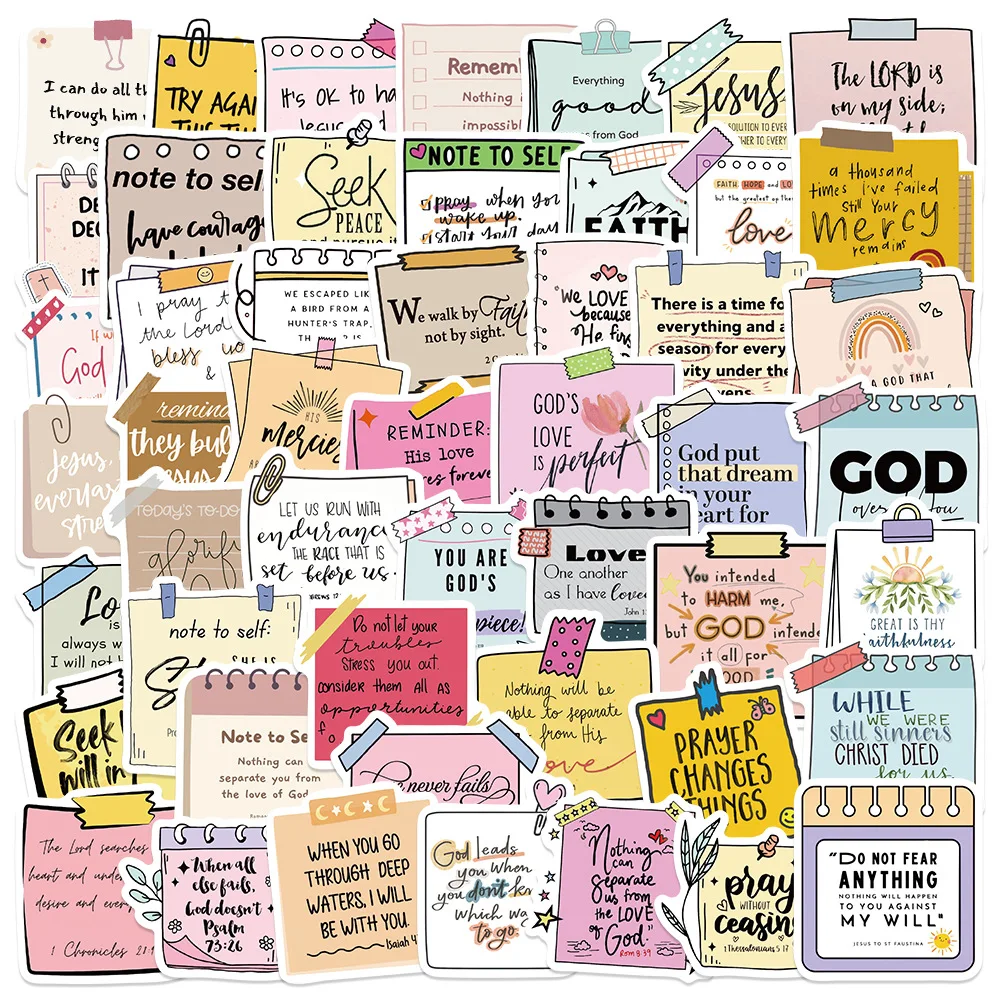 I can do all
through him
TRY AGAI
It's OK to
Jesus
Nothing
impossibl
Everything
good
from God
Jesus
SOLUTION TO EVER
TO EVERY
The LORD is
on my side;
note to sel
have courag
Seek
PEACE
and pursue it
NOTE TO SELF
pray when you
wake up.
start your day
FAITH
FAITH HOPE and LO
but the greatest of the
love
a thousand
times i've failed
Still Your
Mercy
remains
DE
DEC
IT
God
I pray t
the Lord
bless
&
WE ESCAPED LIK
A BIRD FROM A
HUNTER'S TRAP.
We walk by Faith
not by sight.
We LOVE
because
He firs
There is a time fo
everything and a
season for every
vity under the
vens
A GOD THAT
Jesus,
everlas
stre
remind
they bul
Jesus
HIS
Mercie
REMINDER:
His love
es foreve
GOD'S
LOVE
IS perfect
God put
that dream
in your
heart for
GOD
over
TODAY'S TO-DO
glorify
LET US RUN WITH
endurance
THE RACE THAT IS
set before us.
YOU ARE
GOD'S
piece!
Love
One another
as I have loved
John 1
You intended
to HARM me,
but GOD intende
it all for
GREAT IS THY
faithfulness
Lo
is
always w
I will not
note to self:
SHE IS
Do not let your
troubles
Stress you out.
consider them all as
opportunities
Nothing will be
able to separate
from His
love
PRAYER
CHANGES
THINGS
WHILE
WE WERE
still sinners
CHRIST DIED
for us
Seek
will
Note to Se
Nothing can
separate you from
the love of God
never fails
The Lord searches
heart and unde
desire and ever
1 Chronicles
When all
else fails,
God doesn't
Psalm
73:26
WHEN YOU GO
THROUGH DEEP
WATERS, I WILL
BE WITH YOU.
Isaiah 4
God leads
you when
you don't kn
which wa
to go.
"Nothing
can
Separate
Us from
the LOVE
of God."
Rom 8:39
pray
WITHOUT
ceasin
1 Thessalonians 5:17
"DO NOT FEAR
ANYTHING
NOTHING WILL HAPPEN
TO YOU AGAINST
MY WILL"
JESUS TO ST FAUSTINA